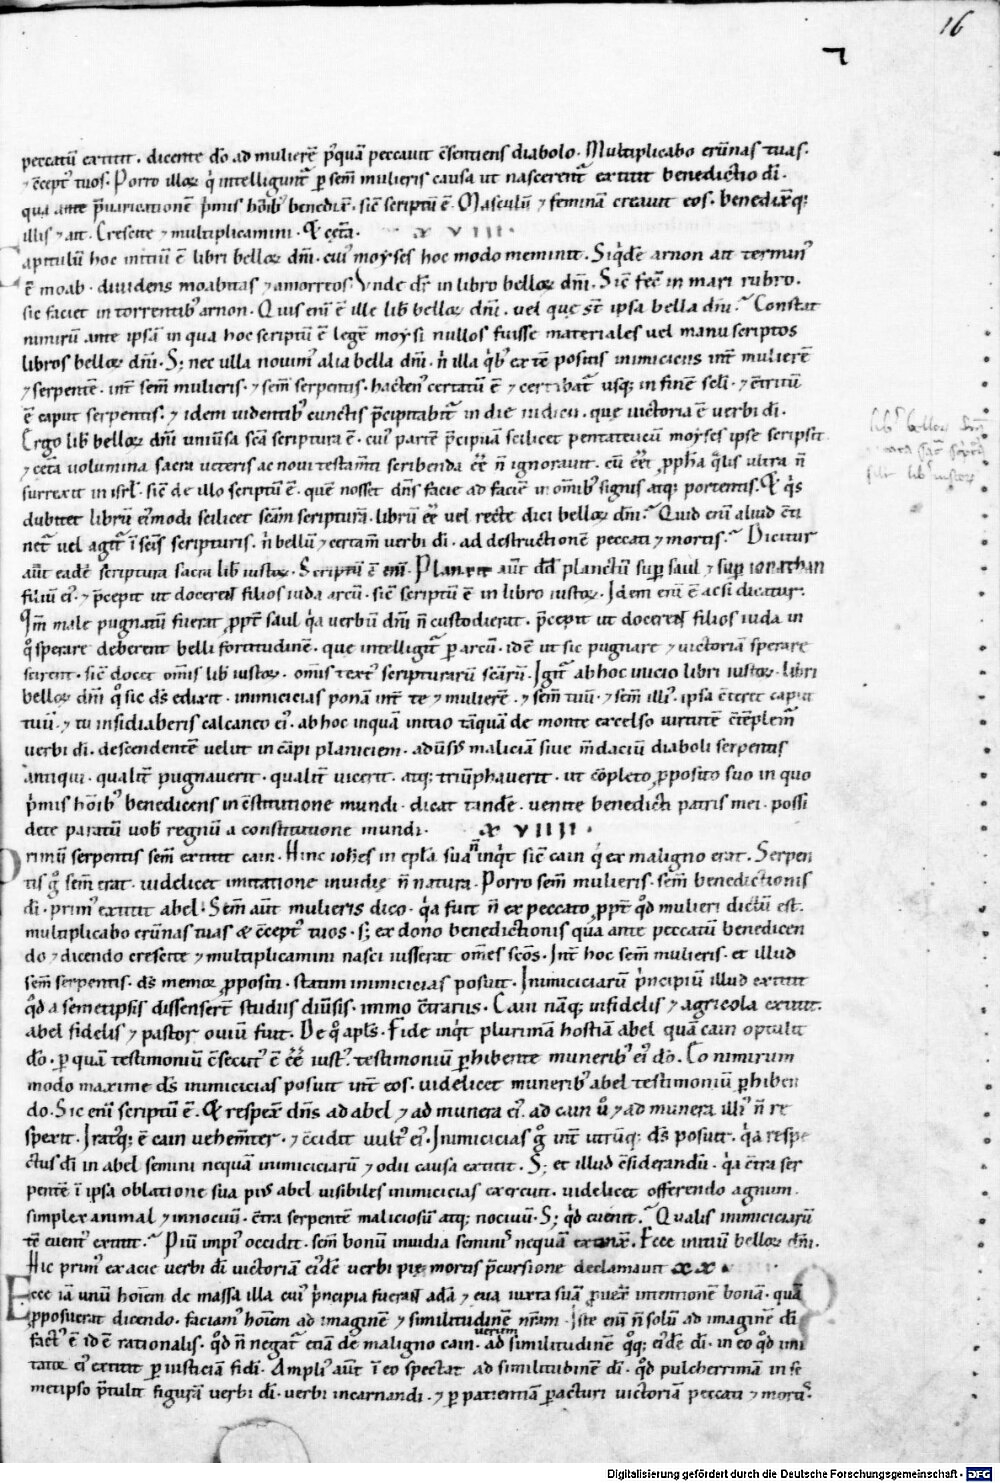 16
peccatū extitit · dicente dō ad mulierē p̄quā peccavit c̄sentiens diabolo · Multiplicabo erūnas tuas ·
⁊ c̄cept᷒ tuos · Porro illoꝝ q̇ intelligunt᷒ ꝑ sem̄ mulieris causa ut nascerent᷒ extitit benedictio dī ·
qua ante p̄uaricationē p̄mis hōib᷒ benedix̄ · sic̄ scriptū ē · Masculū ⁊ feminā creavit eos · benedixq;
illis ⁊ ait · Crescite ⁊ multiplicamini · & cęta · XVIII ·
Capitulū hoc initiū ē libri belloꝝ dn̄i · cui᷒ moyses hoc modo meminit · Siqdē arnon ait termin᷒
ē moab · dividens moabitas ⁊ amorreos · Unde dr̄ in libro belloꝝ dn̄i · Sic̄ fec̄ in mari rubro ·
sic faciet in torrentib᷒ arnon · Quis enī ē ille lib̄ belloꝝ dn̄i · vel quę st̄ ipsa bella dn̄i · Constat
nimirū ante ipsā in qua hoc scriptū ē legē moysi nullos fuisse materiales vel manu scriptos
libros belloꝝ dn̄i · S; nec ulla novim᷒ alia bella dn̄i · n̄ illa q̇b᷒ ex tē positis inimiciciis int̄ mulierē
⁊ serpentē · int̄ sem̄ mulieris · ⁊ sem̄ serpentis · hacten᷒ certatū ē ⁊ certabat᷒ usq; in finē sclī · ⁊ c̄tritū
ē caput serpentis · ⁊ idem videntib᷒ cunctis p̄cipitabit᷒ in die iudicii · quę victoria ē verbi dī ·
Ergo lib̄ belloꝝ dn̄i univsa scā scriptura ē · cui᷒ partē p̄cipuā scilicet pentateucū moyses ipse scripsit
⁊ cęta volumina sacra veteris ac novi testam̄ti scribenda ēē n̄ ignoravit · cū ēēt ꝓpha q̄lis ultra n̄
surrexit in isrl̄ · sic̄ de illo scriptū ē · quē nosset dn̄s facie ad faciē in omīb᷒ signis atq; portentis · & q̇s
dubitet librū ei᷒modi scilicet scām scripturā · librū ēē vel recte dici belloꝝ dn̄i · Quid enī aliud c̄ti
net᷒ vel agit᷒ ī scīs scripturis · n̄ bellū ⁊ certam̄ verbi dī · ad destructionē peccati ⁊ mortis · Dicitur
aūt eadē scriptura sacra lib̄ iustoꝝ · Scriptū ē enī · Planxit aūt dd̄ planctū sup̄ saul ⁊ sup̄ ionathan
filiū ei᷒ · ⁊ p̄cepit ut docerent filios iuda arcū · sic̄ scriptū ē in libro iustoꝝ · Idem enī ē acsi dicatur ·
male pugnatū fuerat ꝓpt̄ saul q̇a verbū dn̄i n̄ custodierat · p̄cepit ut docerent filios iuda in
q̊ sperare deberent belli fortitudinē · que intelligit᷒ ꝑ arcū · id ē ut sic pugnare ⁊ victoriā sperare
scirent · sic̄ docet om̄is lib̄ iustoꝝ · om̄is text᷒ scripturarū scārū · Igit᷒ ab hoc inicio libri iustoꝝ · libri
belloꝝ dn̄i q̊ sic ds̄ edixit · inimicicias ponā int̄ te ⁊ mulierē · ⁊ sem̄ tuū · ⁊ sem̄ illi᷒ · ipsa c̄teret caput
tuū · ⁊ tu insidiaberis calcaneo ei᷒ · ab hoc inquā initio tāquā de monte excelso virtutē c̄tēplem᷒
verbi dī · descendentē velut in cāpi planiciem · adūsus maliciā sive m̄daciū diaboli serpentis
antiqui · qualit᷒ pugnaverit · qualit᷒ vicerit · atq; triūphaverit · ut cōpleto ꝓposito suo in quo
p̄mis hōib᷒ benedicens in c̄stitutione mundi · dicat tandē · venite benedicti patris mei · possi
dete paratū vob̄ regnū a constitutione mundi · XVIIII ·
Primū serpentis sem̄ extitit cain · Hinc iohēs in epl̄a sua n̄ inq̇t sic̄ cain q̇ ex maligno erat · Serpen
tis g̊ sem̄ erat · videlicet imitatione invidię n̄ natura · Porro sem̄ mulieris · sem̄ benedictionis
dī · prim᷒ extitit abel · Sem̄ aūt mulieris dico · q̇a fuit n̄ ex peccato ꝓpt̄ qd̄ mulieri dictū est ·
multiplicabo erūnas tuas & c̄cept᷒ tuos · s; ex dono benedictionis qua ante peccatū benedicen
do ⁊ dicendo crescite ⁊ multiplicamini nasci iusserat om̄es scōs · Int̄ hoc sem̄ mulieris · et illud
sem̄ serpentis · ds̄ memor ꝓpositi · statim inimicicias posuit · Inimiciciarū p̄ncipiū illud extitit
qd̄ a semetipsis dissenserт studiis divsis · immo c̄trariis · Cain nāq; infidelis ⁊ agricola extitit ·
abel fidelis ⁊ pastor oviū fuit · De q̊ apl̄s · Fide inq̇t plurimā hostiā abel quā cain optulit
dō · ꝑ quā testimoniū c̄secut᷒ ē ēē iust᷒ · testimoniū ꝑhibente munerib᷒ ei᷒ dō · Eo nimirum
modo maxime ds̄ inimicicias posuit int̄ eos · videlicet munerib᷒ abel testimoniū ꝑhiben
do · Sic enī scriptū ē · & respex̄ dn̄s ad abel ⁊ ad munera ei᷒ · ad cain v̊ ⁊ ad munera illi᷒ n̄ re
spexit · Iratq; ē cain vehem̄ter · ⁊ c̄cidit vult᷒ ei᷒ · Inimicicias g̊ int̄ utrūq; ds̄ posuit · q̇a respe
ctus dī in abel semini nequā inimiciciarū ⁊ odii causa extitit · S; et illud c̄siderandū · q̇a c̄tra ser
pentē ī ipsa oblatione sua pius abel visibiles inimicicias exercuit · videlicet offerendo agnum ·
simplex animal ⁊ innocuū · c̄tra serpentē maliciosū atq; nocivū · S; qd̄ evenit · Qualis inimiciciarū
tē event᷒ extitit · Piū impi᷒ occidit · sem̄ bonū invidia semini᷒ nequā · Ecce initiū belloꝝ dn̄i ·
Hic prim᷒ ex acie verbi dī victoriā ei᷒dē verbi pię mortis p̄cursione declamavit XX ·
Ecce iā unū hoīem de massa illa cui᷒ p̄ncipia fuerant adā ⁊ eva iuxta suā intentionē bonā · quā
ꝓposuerat dicendo · faciam᷒ hoīem ad imaginē ⁊ similitudinē nr̄am · Iste enī n̄ solū ad imaginē dī
fact᷒ ē id ē rationalis · qd̄ n̄ negat᷒ etiā de maligno cain · verum ad similitudinē q̊q; ei᷒dē dī · in eo qd̄ imi
tator ei᷒ extitit ꝑ iusticiā fidī · Ampli᷒ aūt ī eo spectat ad similitudinē dī · qd̄ pulcherrimā in se
metipso p̄tulit figurā verbi dī · verbi incarnandi · ⁊ ꝑ patientiā ꝑacturi victoriā peccati ⁊ mortis ·
Digitalisierung gefördert durch die Deutsche Forschungsgemeinschaft - DFG